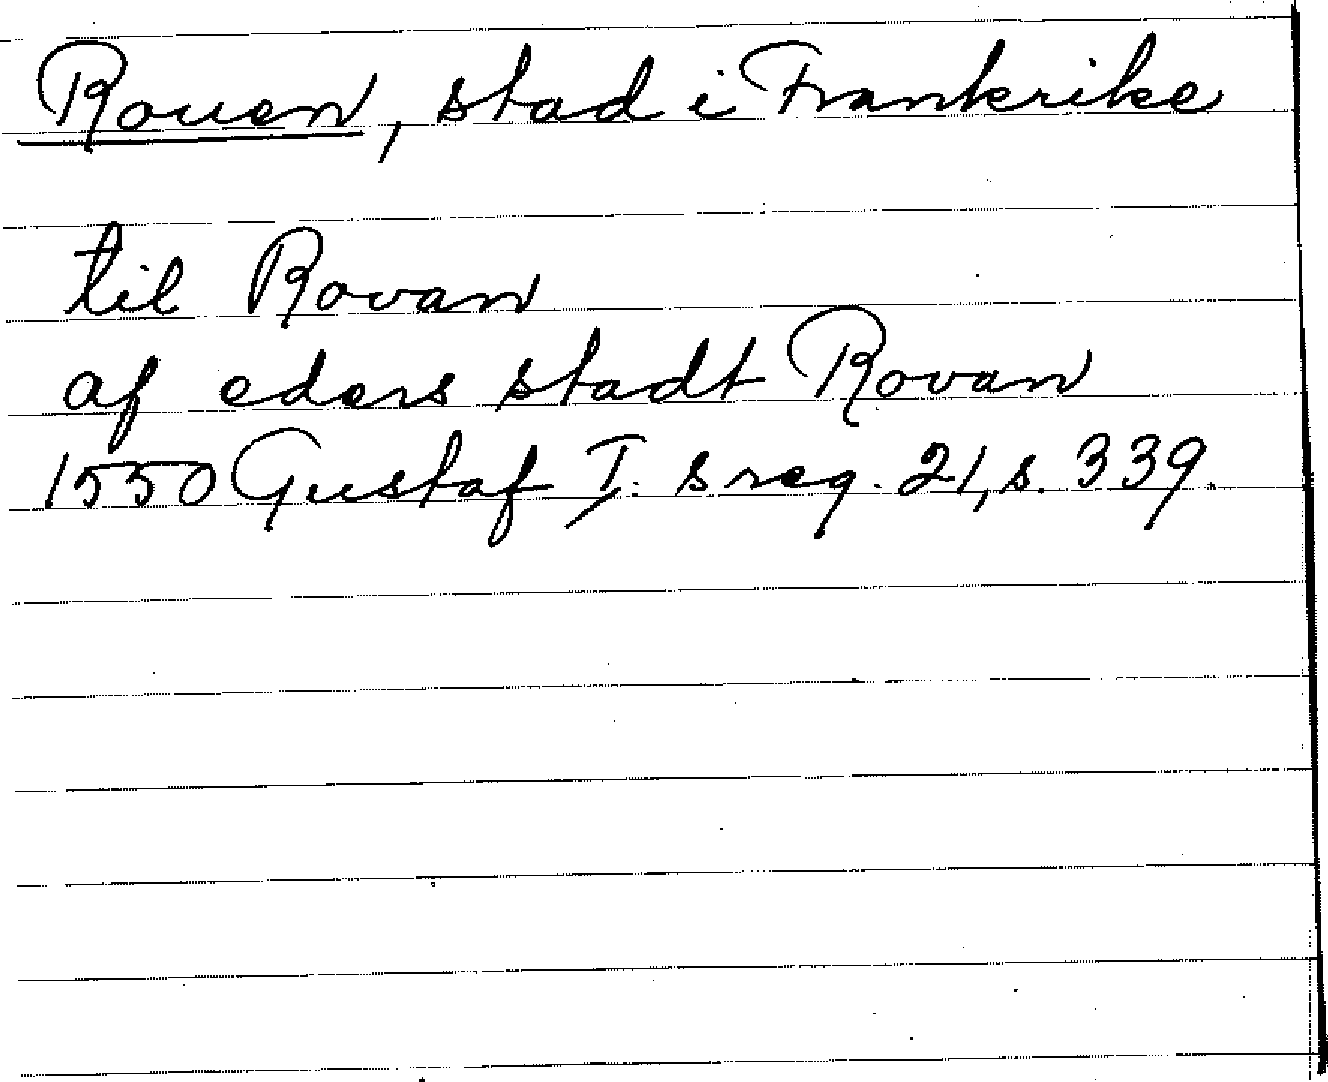 Rouen, stad i Frankrike
til Rovan
af eders stadt Rovan
1550 Gustaf I:s reg. 21, s. 339.